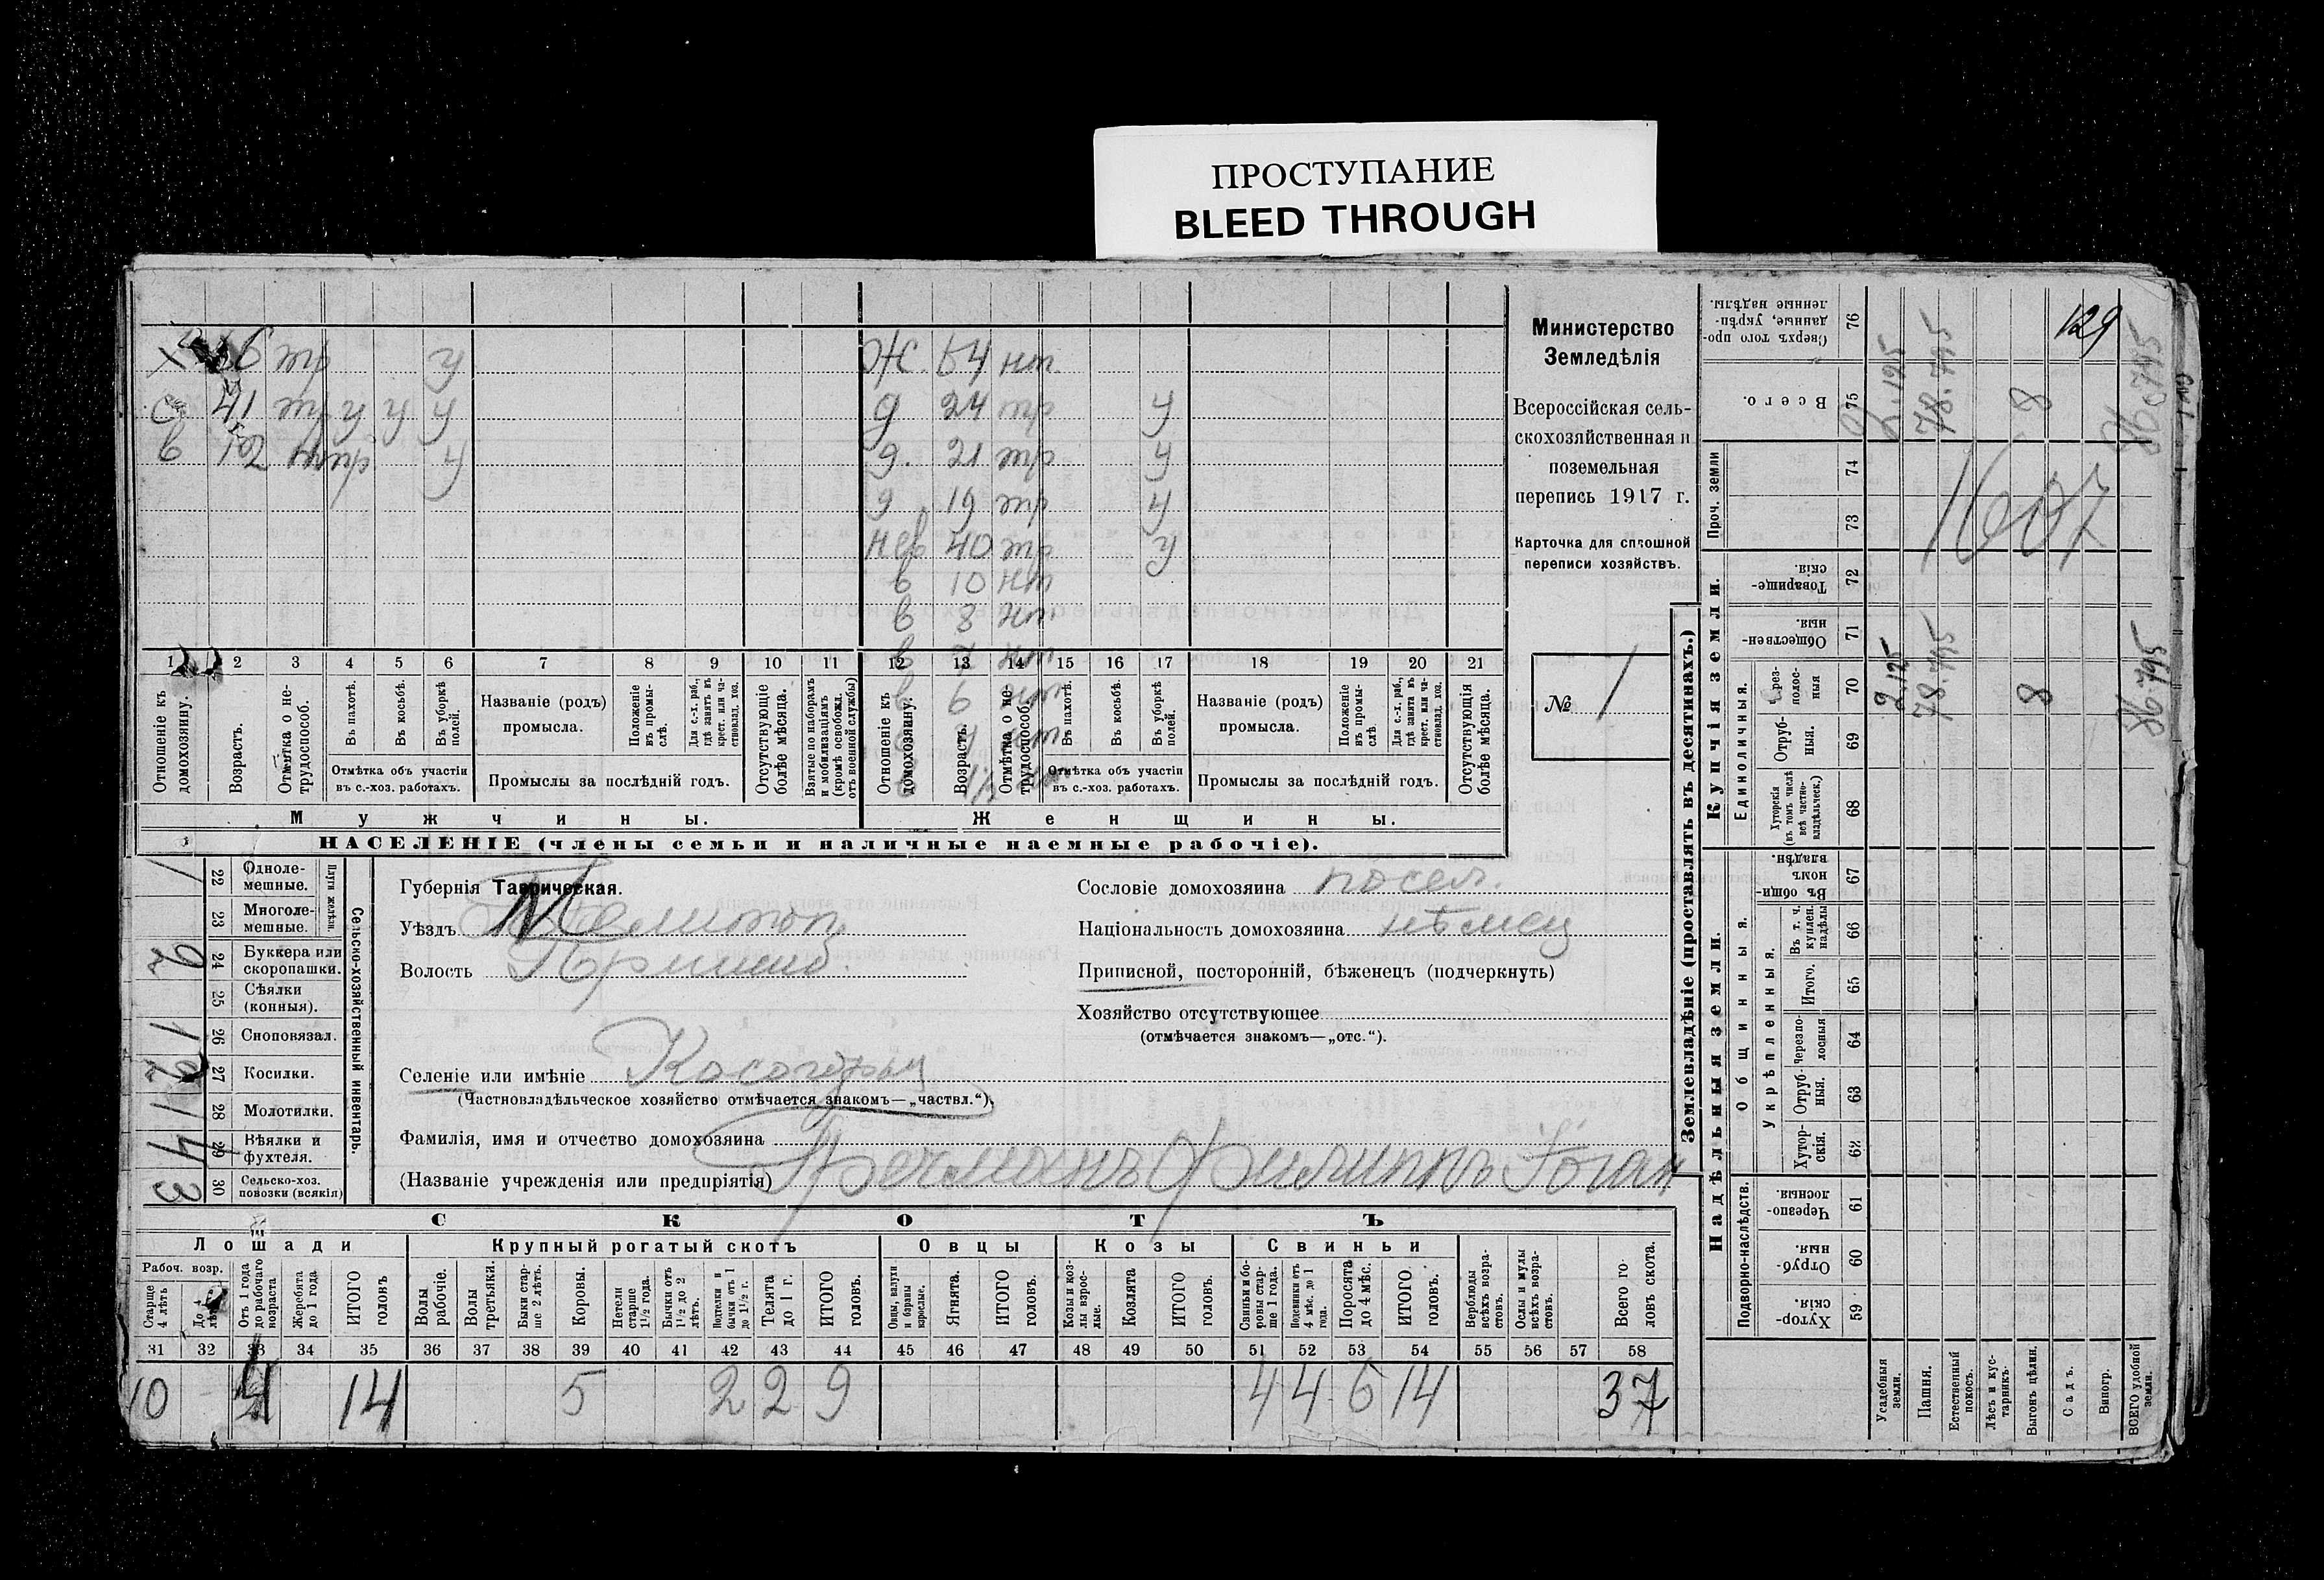 ПРОСТУПАНИЕ
BLEED THROUGH
129
х тр у
с 41 тр у у у
ж. 64 нт
д 24 тр у
д. 21 тр у
д 19 тр у
нев 40 тр у
в 10 нт
в 8 нт
1 2 3 4 5 6 7 8 9 10 11 12 13 14 15 16 17 18 19 20 21
Отношеніе къ домохозяину.
Возрастъ.
Отмѣтка о не-трудоспособ.
Въ пахотѣ.
Въ косьбѣ.
Въ уборкѣ полей.
Отмѣтка объ участіи
въ с.-хоз. работахъ.
Названіе (родъ)
промысла.
Положеніе въ промы-слѣ.
Для с.-х. раб., гдѣ занятъ въ крест. или ча-стновлад. хоз.
Промыслы за послѣдній годъ.
Отсутствующіе болѣе мѣсяца.
Взятые по наборамъ и мобилизаціямъ (кромѣ освобожд. отъ военной службы)
Отношеніе къ домохозяину.
Возрастъ.
Отмѣтка о не-трудоспособ.
Въ пахотѣ.
Въ косьбѣ.
Въ уборкѣ полей.
Отмѣтка объ участіи
въ с.-хоз. работахъ.
Названіе (родъ)
промысла.
Положеніе въ промы-слѣ
Для с.-х. раб., гдѣ занята въ крест. или ча-стновлад. хоз.
Промыслы за послѣдній годъ.
Отсутствующія болѣе мѣсяца.
Мужчины.
Женщины.
НАСЕЛЕНІЕ (члены семьи и наличные наемные рабочіе).
Министерство
Земледѣлія
Всероссійская сель-
скохозяйственная и
поземельная
перепись 1917 г.
Карточка для сплошной
переписи хозяйствъ.
№ 1
1 22 Одноле-мешные.
23 Многоле-мешные.
Плуги желѣзн.
2 24 Буккера или скоропашки.
25 Сѣялки (конныя).
1 26 Сноповязал.
2 27 Косилки.
1 28 Молотилки.
1 29 Вѣялки и фухтеля.
3 30 Сельско-хоз. повозки (всякія)
Сельско-хозяйственный инвентарь.
Губернія Таврическая.
Уѣздъ
Волость Пришиб.
Селеніе или имѣніе Косогоры
(Частновладѣльческое хозяйство отмѣчается знакомъ—„частвл.“).
Фамилія, имя и отчество домохозяина
(Названіе учрежденія или предпріятія) Филиппъ Іоган
Сословіе домохозяина посел.
Національность домохозяина нѣмец
Приписной, посторонній, бѣженецъ (подчеркнуть)
Хозяйство отсутствующее
(отмѣчается знакомъ—„отс.“).
СКОТЪ
Лошади
Крупный рогатый скотъ
Овцы
Козы
Свиньи
Рабоч. возр.
Старше 4 лѣтъ
До 4 лѣтъ
Отъ 1 года до рабочаго возраста
Жеребята до 1 года
ИТОГО головъ
Волы рабочіе.
Волы третьяки.
Быки стар-ше 2 лѣтъ.
Коровы.
Нетели старше 1½ года.
Бычки отъ 1½ до 2 лѣтъ.
Подтелки и бычки отъ 1 до 1½ г.
Телята до 1 г.
ИТОГО головъ.
Овцы, валухи и бараны взрослые.
Ягнята.
ИТОГО головъ.
Козы и коз-лы взрос-лые.
Козлята
ИТОГО головъ.
Свиньи и бо-ровы стар-ше 1 года.
Подсвинки отъ 4 мѣс. до 1 года.
Поросята до 4 мѣс.
ИТОГО головъ.
Верблюды всѣхъ возра-стовъ.
Ослы и мулы всѣхъ возра-стовъ.
Всего го-ловъ скота.
31 32 33 34 35 36 37 38 39 40 41 42 43 44 45 46 47 48 49 50 51 52 53 54 55 56 57 58
10 4 14 5 2 2 9 4 4 6 14 37
Землевладѣніе (проставлять въ десятинахъ.)
Надѣльныя земли.
Купчія земли.
Проч. земли
Подворно-наслѣдств.
Общинныя.
Укрѣпленныя.
Единоличныя.
76 Сверхъ того про-данные, укрѣп-ленные надѣлы.
75 Всего. 2.125 78.795 8 86.795
74
73
1607
72 Товарище-скія.
71 Обществен-ныя.
70 Черезполос-ныя 2.125 78.795 8 86.795
69 Отруб-ныя.
68 Хуторскія (въ томъ числѣ всѣ частно-владѣльческ.)
67 Въ общин-номъ владѣн.
66 Въ т. ч. куплен. надѣлы
65 Итого.
64 Черезпо-лосныя
63 Отруб-ныя.
62 Хутор-скія.
61 Черезпо-лосныя.
60 Отруб-ныя.
59 Хутор-скія
Усадебныя земли.
Пашня.
Естественный покосъ.
Лѣсъ и кус-тарникъ.
Выгонъ цѣлин.
Садъ.
Виногр.
ВСЕГО удобной земли.